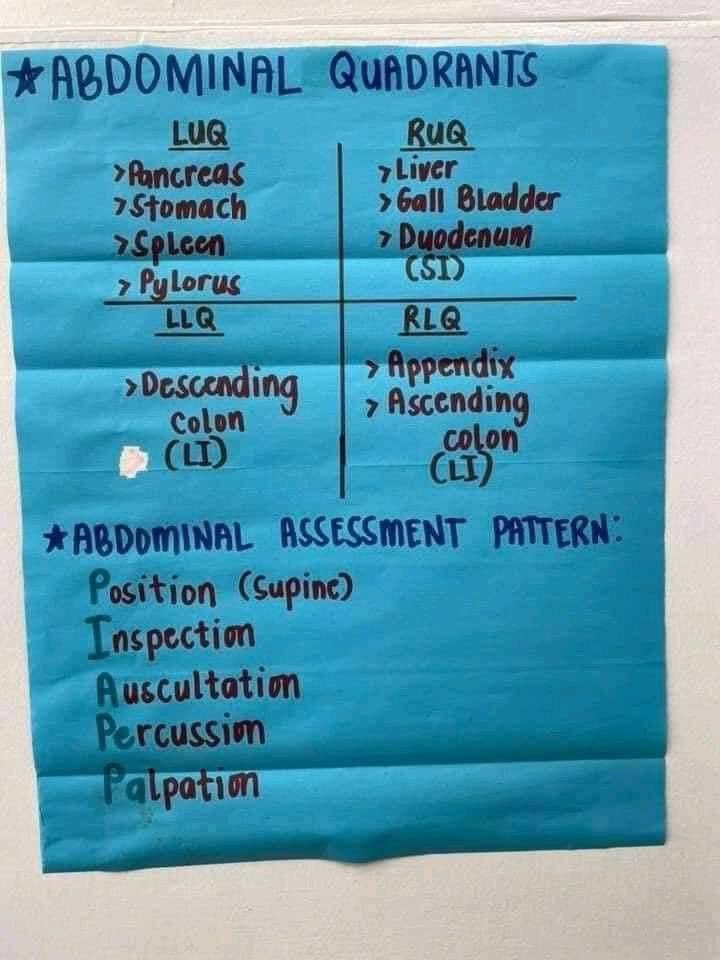 ★ABDOMINAL QUADRANTS
LUQ
>Pancreas
>Stomach
>Spleen
>Pylorus
RUQ
>Liver
>Gall Bladder
>Duodenum
(SI)
LLQ
>Descending
colon
(LI)
RLQ
>Appendix
>Ascending
colon
(LI)
★ABDOMINAL ASSESSMENT PATTERN:
Position (Supine)
Inspection
Auscultation
Percussion
Palpation